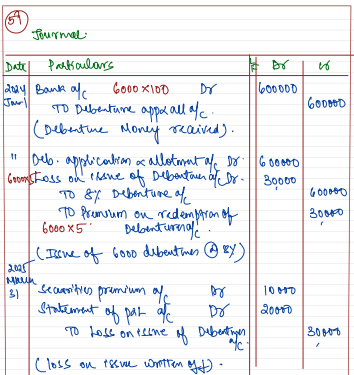 54
Journal
Date Particulars L.F Dr Cr
2024 Jan 1 Bank a/c 6000 x 100 Dr 600000
TO Debenture app & all a/c. 600000
(Debenture Money received).
" Deb. application & allotment a/c Dr. 600000
6000x5 Loss on issue of Debenture a/c Dr. 30000
TO 8% Debenture a/c 600000
TO Premium on redemption of 30000
6000 x 5 Debentures a/c.
(Issue of 6000 debentures @ 8%)
2025
March
31 Securities premium a/c Dr 10000
Statement of p&L a/c Dr 20000
TO Loss on issue of Debentures a/c. 30000
(loss on issue written off).